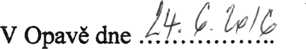 V Opavě dne 24. 6. 2016